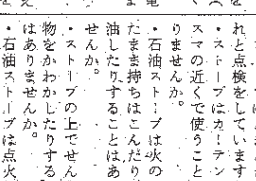 れと点検をしています
・ストーブはカーテン
スマの近くで使うこと
りませんか。
・石油ストーブは火の
たまま持ちはこんだり
油したりすることはあ
せんか。
・ストーブの上でせん
物をかわかしたりする
はありませんか。
・石油ストーブは点火